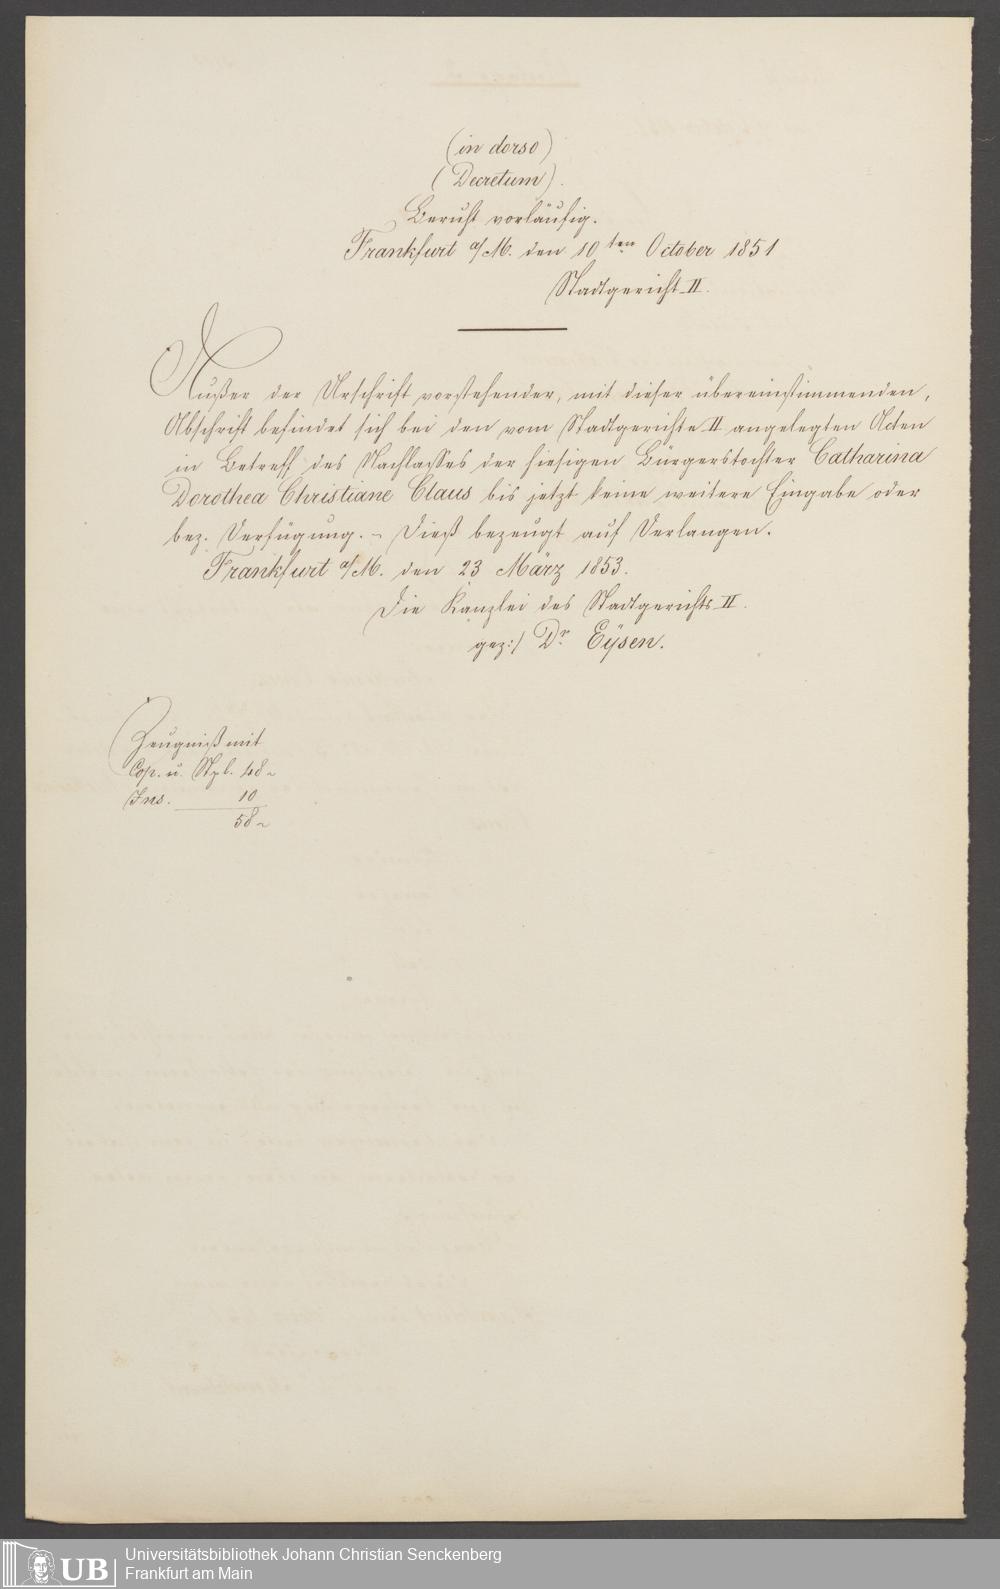 (in dorso)
(Decretum).
Beruht vorläufig.
Frankfurt a/M. den 10ten October 1851
Stadtgericht II.
Außer der Urschrift vorstehender, mit dieser übereinstimmenden,
Abschrift befindet sich bei den vom Stadtgerichte II angelegten Acten
in Betreff des Nachlasses der hiesigen Bürgerstochter Catharina
Dorothea Christiane Claus bis jetzt keine weitere Eingabe oder
bez. Verfügung. – Dieß bezeugt auf Verlangen.
Frankfurt a/M. den 23 März 1853.
Die Kanzlei des Stadtgerichts II.
gez:/ Dr. Eÿsen.
Zeugniß mit
Cop. u. Stpl. 48 „
Ins. 10
58 „
UB
Universitätsbibliothek Johann Christian Senckenberg
Frankfurt am Main